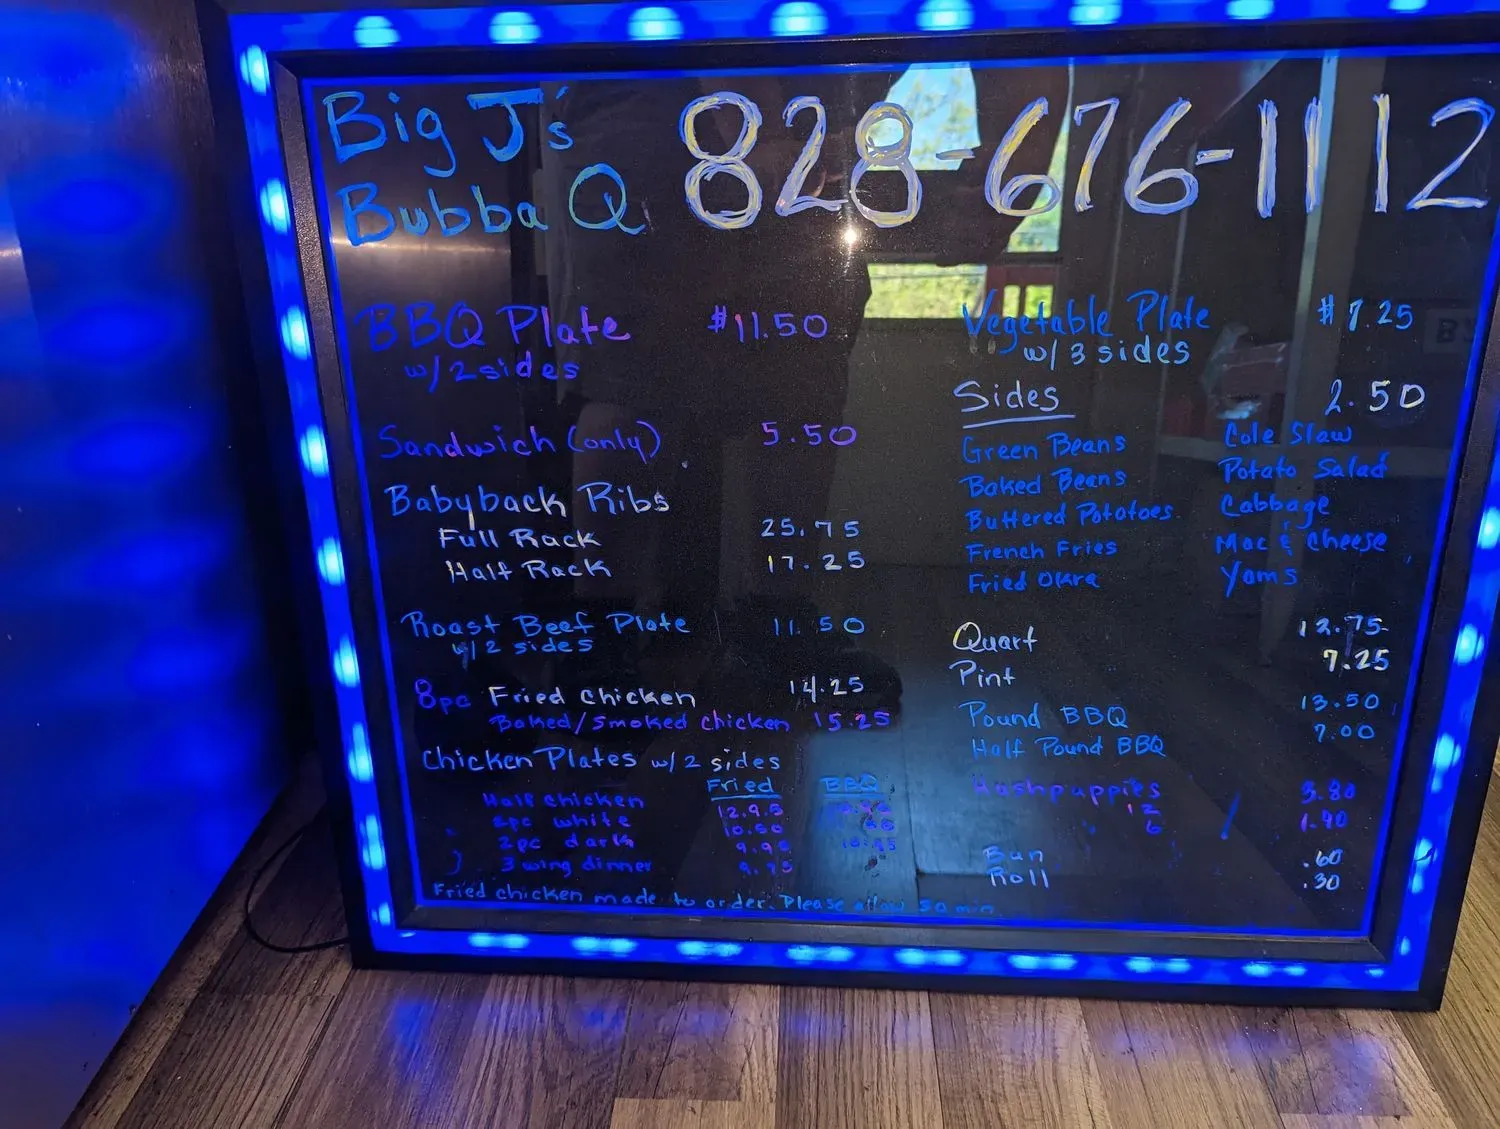 Big J's
Bubba Q
828-676-1112
BBQ Plate $11.50
w/ 2 sides
Sandwich (only) 5.50
Babyback Ribs
Full Rack 25.75
Half Rack 17.25
Roast Beef Plate 11.50
w/ 2 sides
8pc Fried Chicken 14.25
Baked/Smoked Chicken 15.25
Chicken Plates w/ 2 sides
Fried BBQ
Half chicken 12.95
2pc white 10.50
2pc dark 9.95 10.95
3 wing dinner
Fried chicken made to order. Please allow
Vegetable Plate $7.25
w/ 3 sides
Sides 2.50
Green Beans Cole Slaw
Baked Beans Potato Salad
Buttered Potatoes Cabbage
French Fries Mac & Cheese
Fried Okra Yams
Quart 12.75
Pint 7.25
Pound BBQ 13.50
Half Pound BBQ 7.00
Hushpuppies
12 3.80
6 1.90
Bun .60
Roll .30